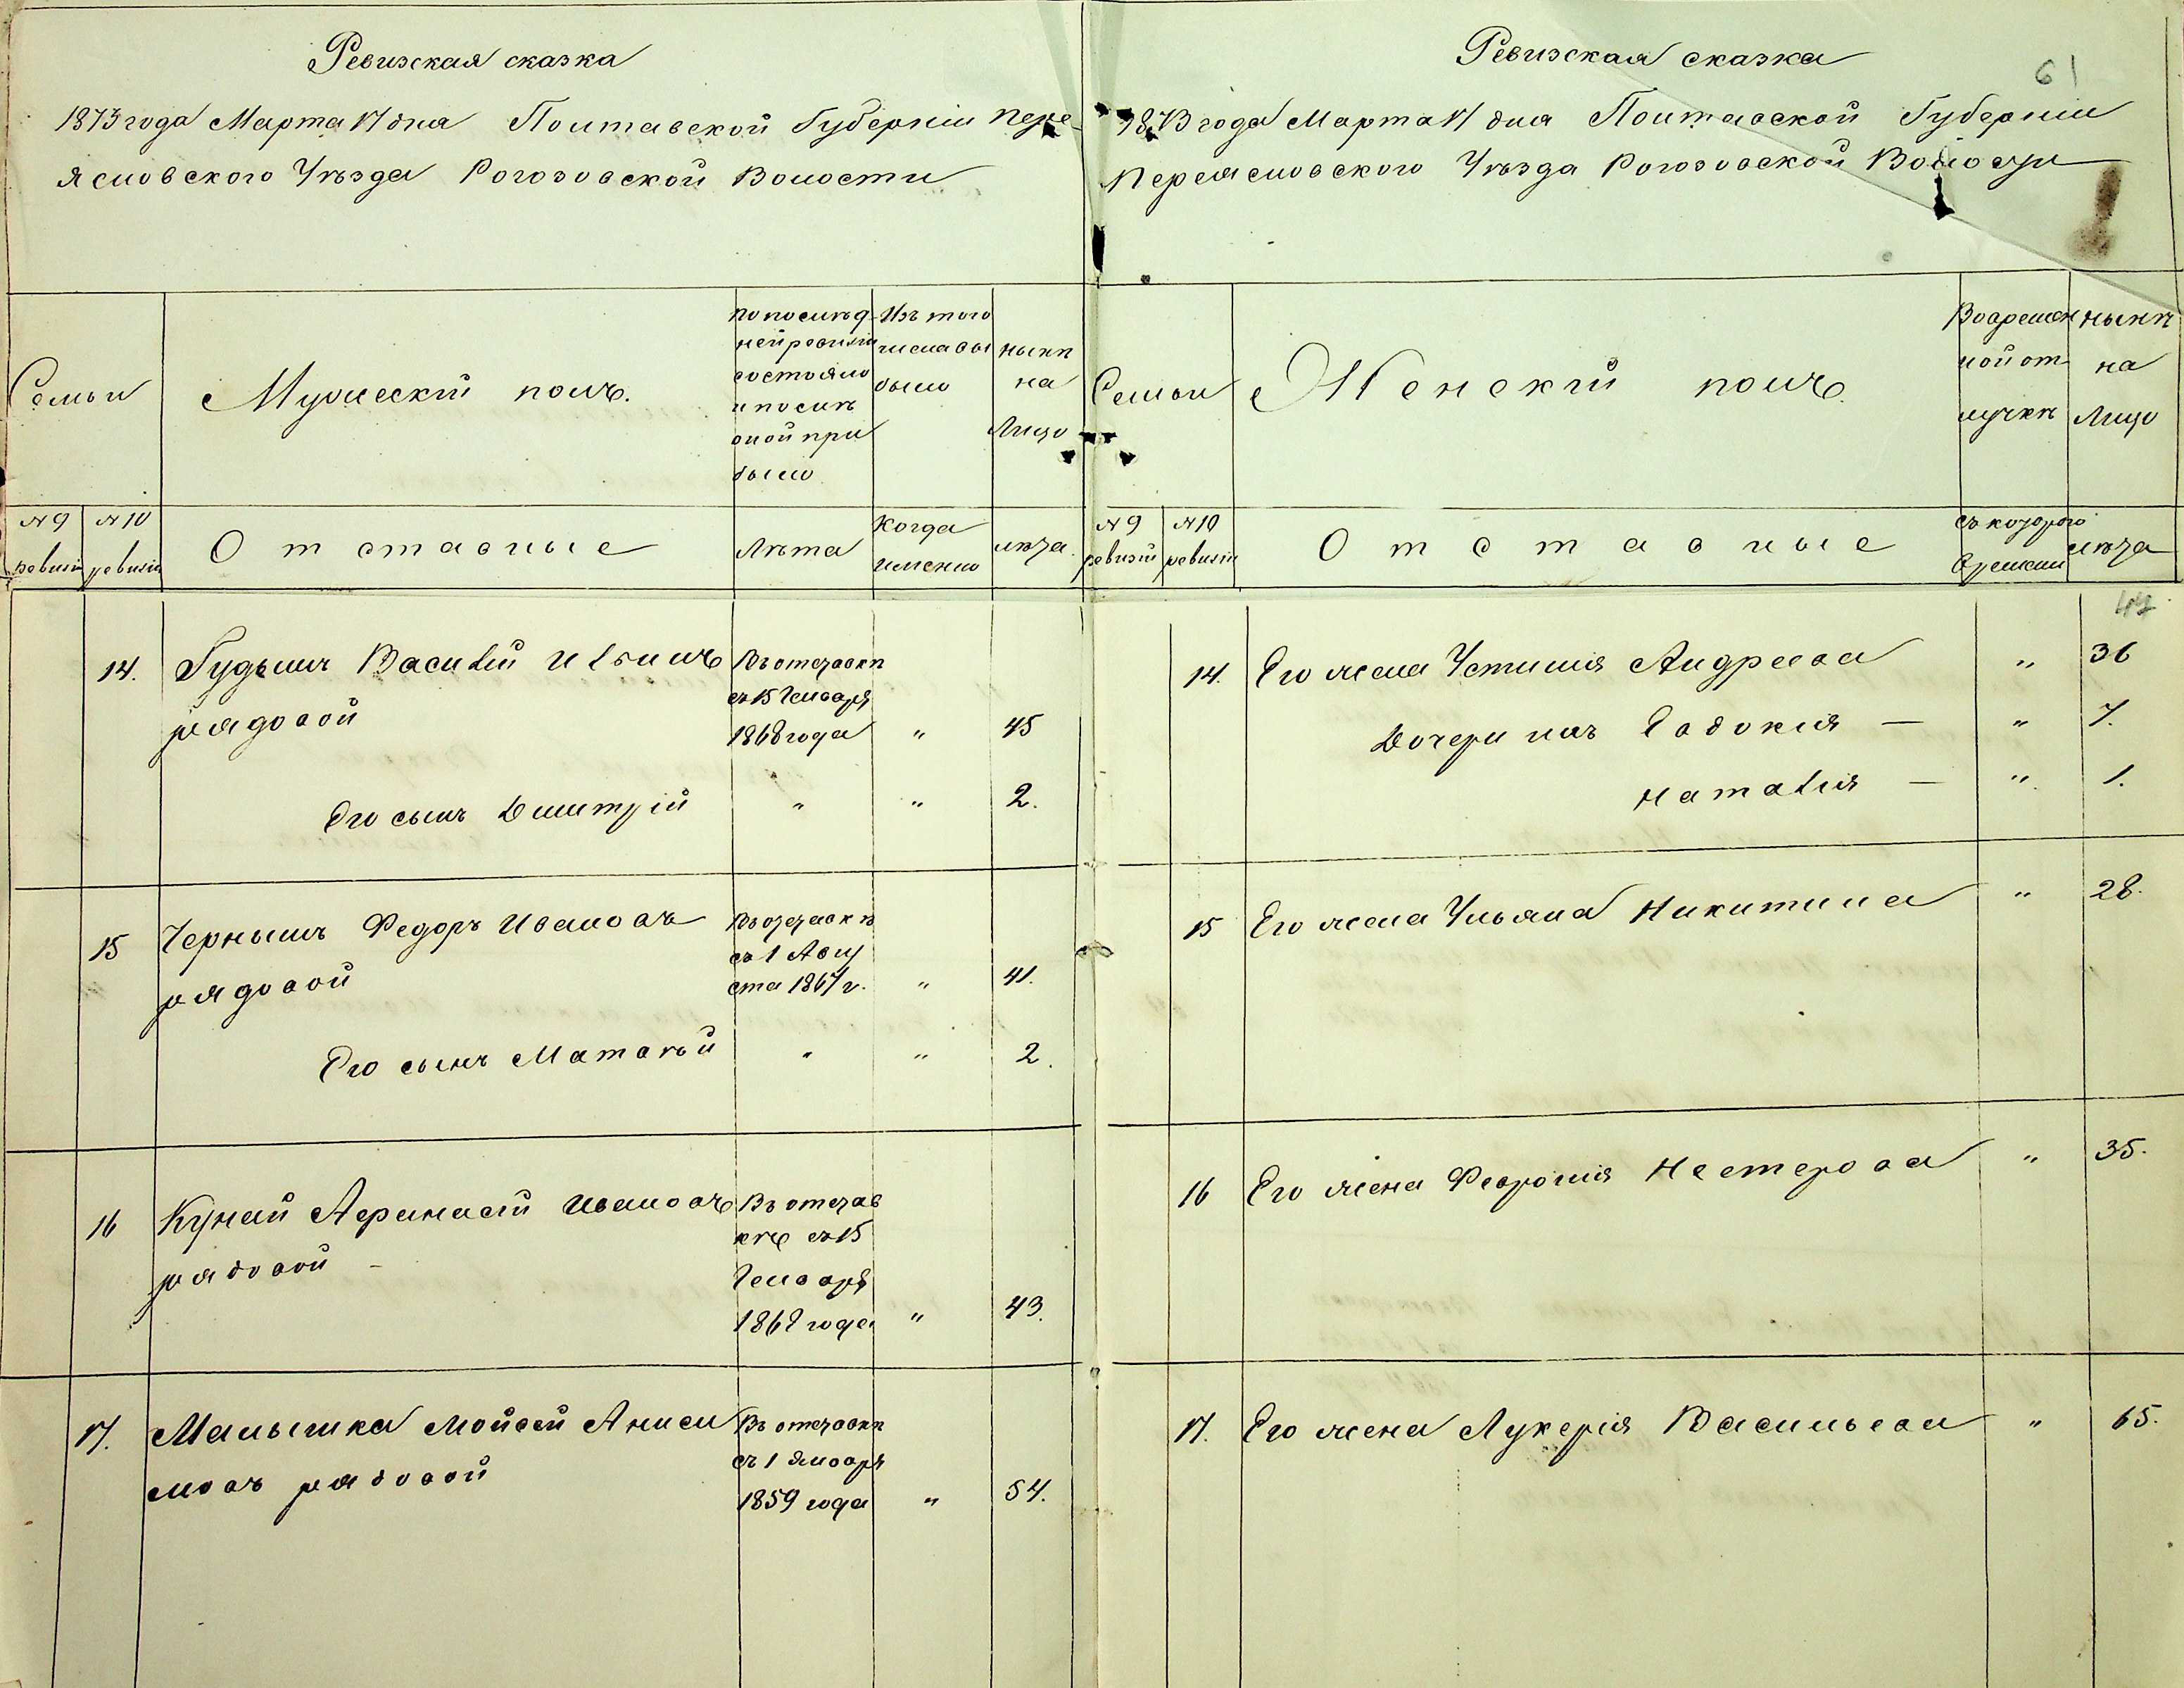 Ревизская сказка
1873 года Марта 17 дня Полтавской Губерніи Пере-
ясловского Уѣзда Рогозовской Волости
Семьи
Мужескій полъ.
по послѣд-
ней ревизіи
состояло
и послѣ
оной при
было
Изъ того
числа вы
было
нынѣ
на
Лицо
№ 9
ревизіи
№ 10
ревизіи
Отставные
Лѣта
Когда
именно
лѣта.
14. Василій Ильинъ
рядовой
Въ отставкѣ
съ 15 Генваря
1868 года " 45
Его сынъ Дмитрій " " 2.
15 Чернышъ Федоръ Ивановъ
рядовой
Въ отставкѣ
съ 1 Авгу
ста 1867 г. " 41.
Его сынъ Матвѣй " " 2.
16 Кунай Афанасій Ивановъ
рядовой -
Въ отстав
кѣ съ 15
Генваря
1868 года " 43.
17. Малышка Мойсей Аниси
мовъ рядовой
Въ отставкѣ
съ 1 Январѣ
1859 года " 54.
Ревизская сказка
61
1873 года Марта 17 дня Полтавской Губерніи
Переясловского Уѣзда Рогозовской Волости
Семьи
Женскій полъ.
Во времен
ной от
лучкѣ
нынѣ
на
Лицо
№ 9
ревизіи
№ 10
ревизіи
Отставные
съ которого
времени
лѣта
14. Его жена Устинія Андреева " 36
Дочери ихъ Евдокія — " 7.
Наталія — " 1.
15 Его жена Ульяна Никитина " 28.
16 Его жена Февронія Нестерова " 35.
17. Его жена Лукерія Васильева " 65.